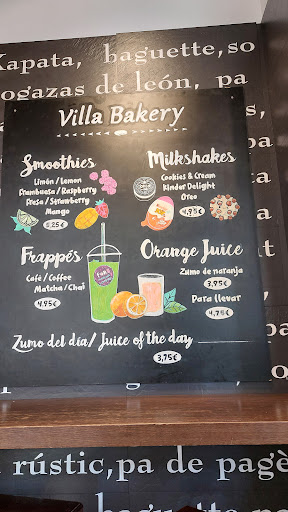 Kapata, baguette, so
ogazas de león, pa
Villa Bakery
Smoothies
Limón / Lemon
Frambuesa / Raspberry
Fresa / Strawberry
Mango
5,25€
Milkshakes
Cookies & Cream
Kinder Delight
Oreo
4,95€
Frappés
Café / Coffee
Matcha / Chai
4,95€
Orange Juice
Zumo de naranja
3,95€
Para llevar
4,75€
Zumo del día / Juice of the day
3,75€
rústic, pa de pagè
baguette